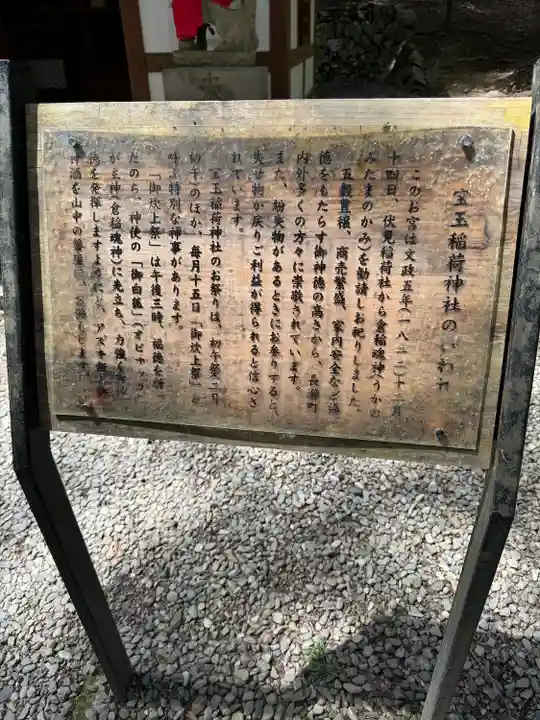 宝玉稲荷神社のいわれ
このお宮は文政五年(一八二二)十二月
十四日、伏見稲荷社から倉稲魂神(うかの
みたまのかみ)を勧請しお祀りしました。
五穀豊穣、商売繁盛、家内安全など福
徳をもたらす御神徳の高さから、長瀞町
内外多くの方々に崇敬されています。
また、紛失物があるときにお参りすると、
失せ物が戻りご利益が得られると信心さ
れています。
宝玉稲荷神社のお祭りは、初午祭
初午のほか、毎月十五日「御炊上祭」と
呼ぶ特別な神事があります。
「御炊上祭」は午後三時、福徳を祈
たのち、神使の「御白狐」(オビャッコ)
が主神・倉稲魂神に先立ち、力強く
徳を発揮しますように、アズキ飯
神酒を山中の お供えします。